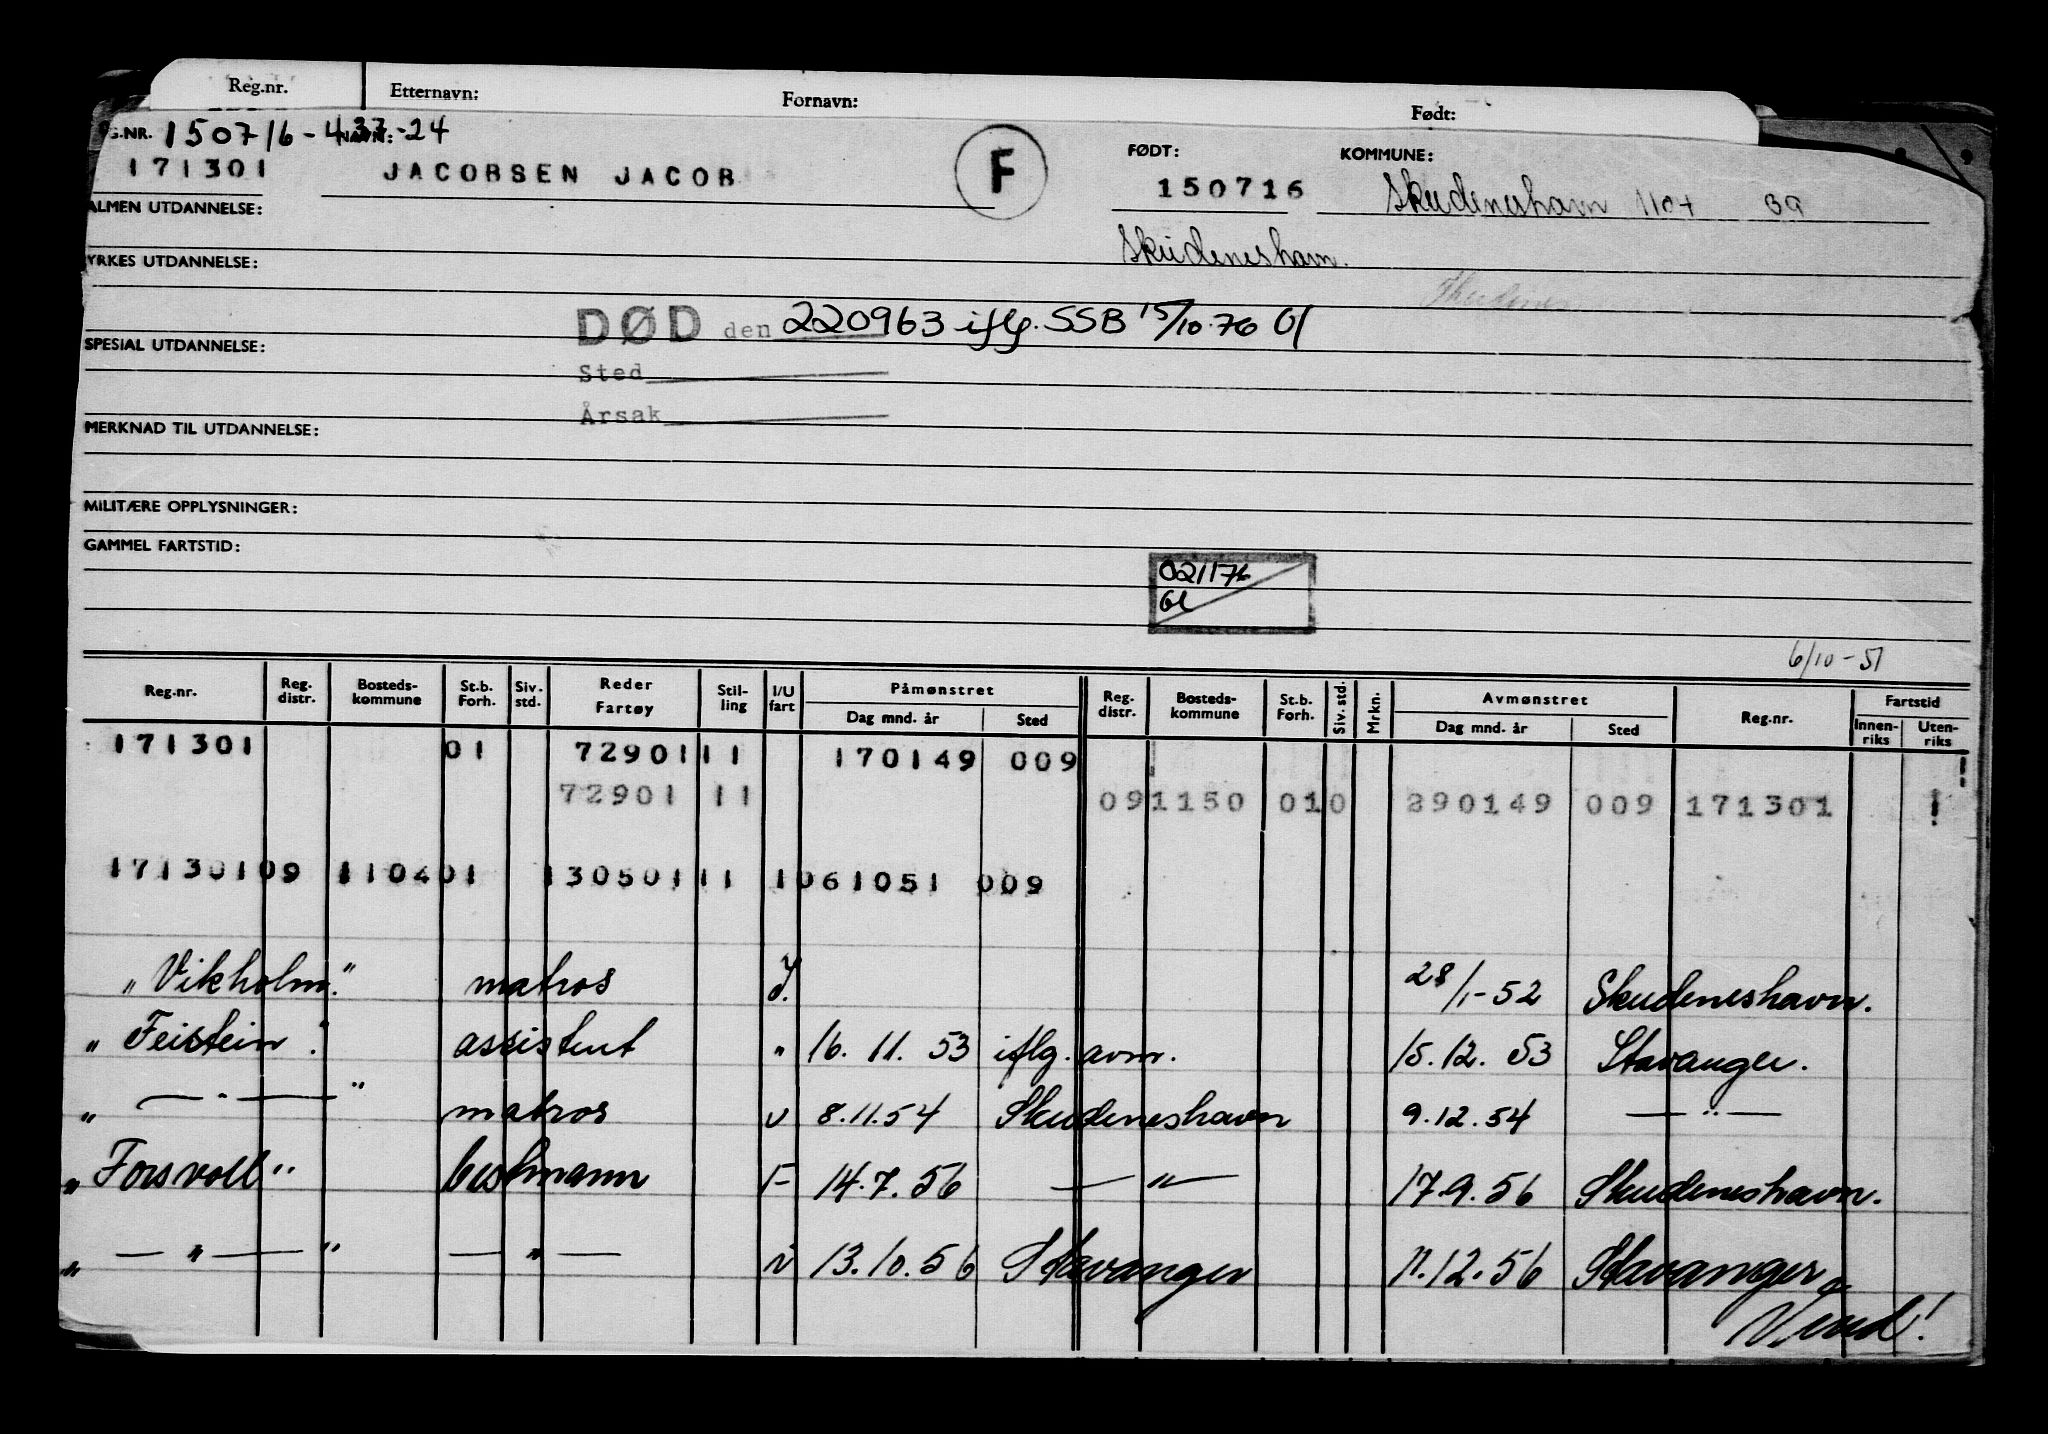 Reg.nr. Etternavn: Fornavn: Født:
G.NR. 150716-437-24 NAVN: FØDT: KOMMUNE:
171301 JACOBSEN JACOB F 150716 Skudeneshavn 1104 39
ALMEN UTDANNELSE:
Skudeneshavn.
YRKES UTDANNELSE:
DØD den 220963 iflg. SSB 15/10-76 Gl
SPESIAL UTDANNELSE:
Sted
Årsak
MERKNAD TIL UTDANNELSE:
MILITÆRE OPPLYSNINGER:
GAMMEL FARTSTID:
021176
Gl
6/10-51
Reg.nr. Reg. distr. Bosteds-kommune St.b. Forh. Siv. std. Reder Fartøy Stil-ling I/U fart Påmønstret Reg. distr. Bosteds-kommune St.b. Forh. Siv. std. Mrkn. Avmønstret Reg.nr. Fartstid
Dag mnd. år Sted Dag mnd. år Sted Innen-riks Uten-riks
171301 01 72901 11 170149 009
72901 11 091150 010 290149 009 171301 1
171301 09 1104 01 130501 11 1 061051 009
"Vikholm" matros I. 28/1-52 Skudeneshavn.
"Feistein" assistent " 16.11.53 iflg. avm. 15.12.53 Stavanger.
" — " — " matros u 8.11.54 Skudeneshavn 9.12.54 — " —
"Forsvoll" bestmann F 14.7.56 — " — 17.9.56 Skudeneshavn.
" — " — " — " — i 13.10.56 Stavanger 11.12.56 Stavanger
Vend!